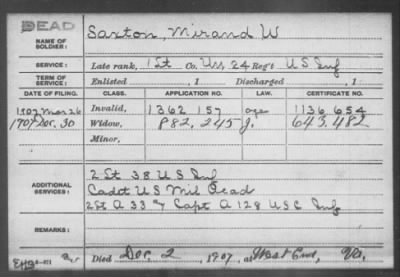 DEAD
NAME OF SOLDIER: Saxton, Mirand W
SERVICE: Late rank, 1 Lt Co. Un, 24 Reg't U S Inf
TERM OF SERVICE: Enlisted , 1 Discharged , 1
DATE OF FILING. CLASS. APPLICATION NO. LAW. CERTIFICATE NO.
1907 Mar 26 Invalid, 1362 157 age 1136 654
1907 Dec. 30 Widow, 882, 245 J. 643,482
Minor,
ADDITIONAL SERVICES: 2 Lt 38 U S Inf
Cadet U S Mil Acad
2 Lt A 33 Capt A 128 U S C Inf
REMARKS:
Died Dec. 2, 1907, at West End, Va.